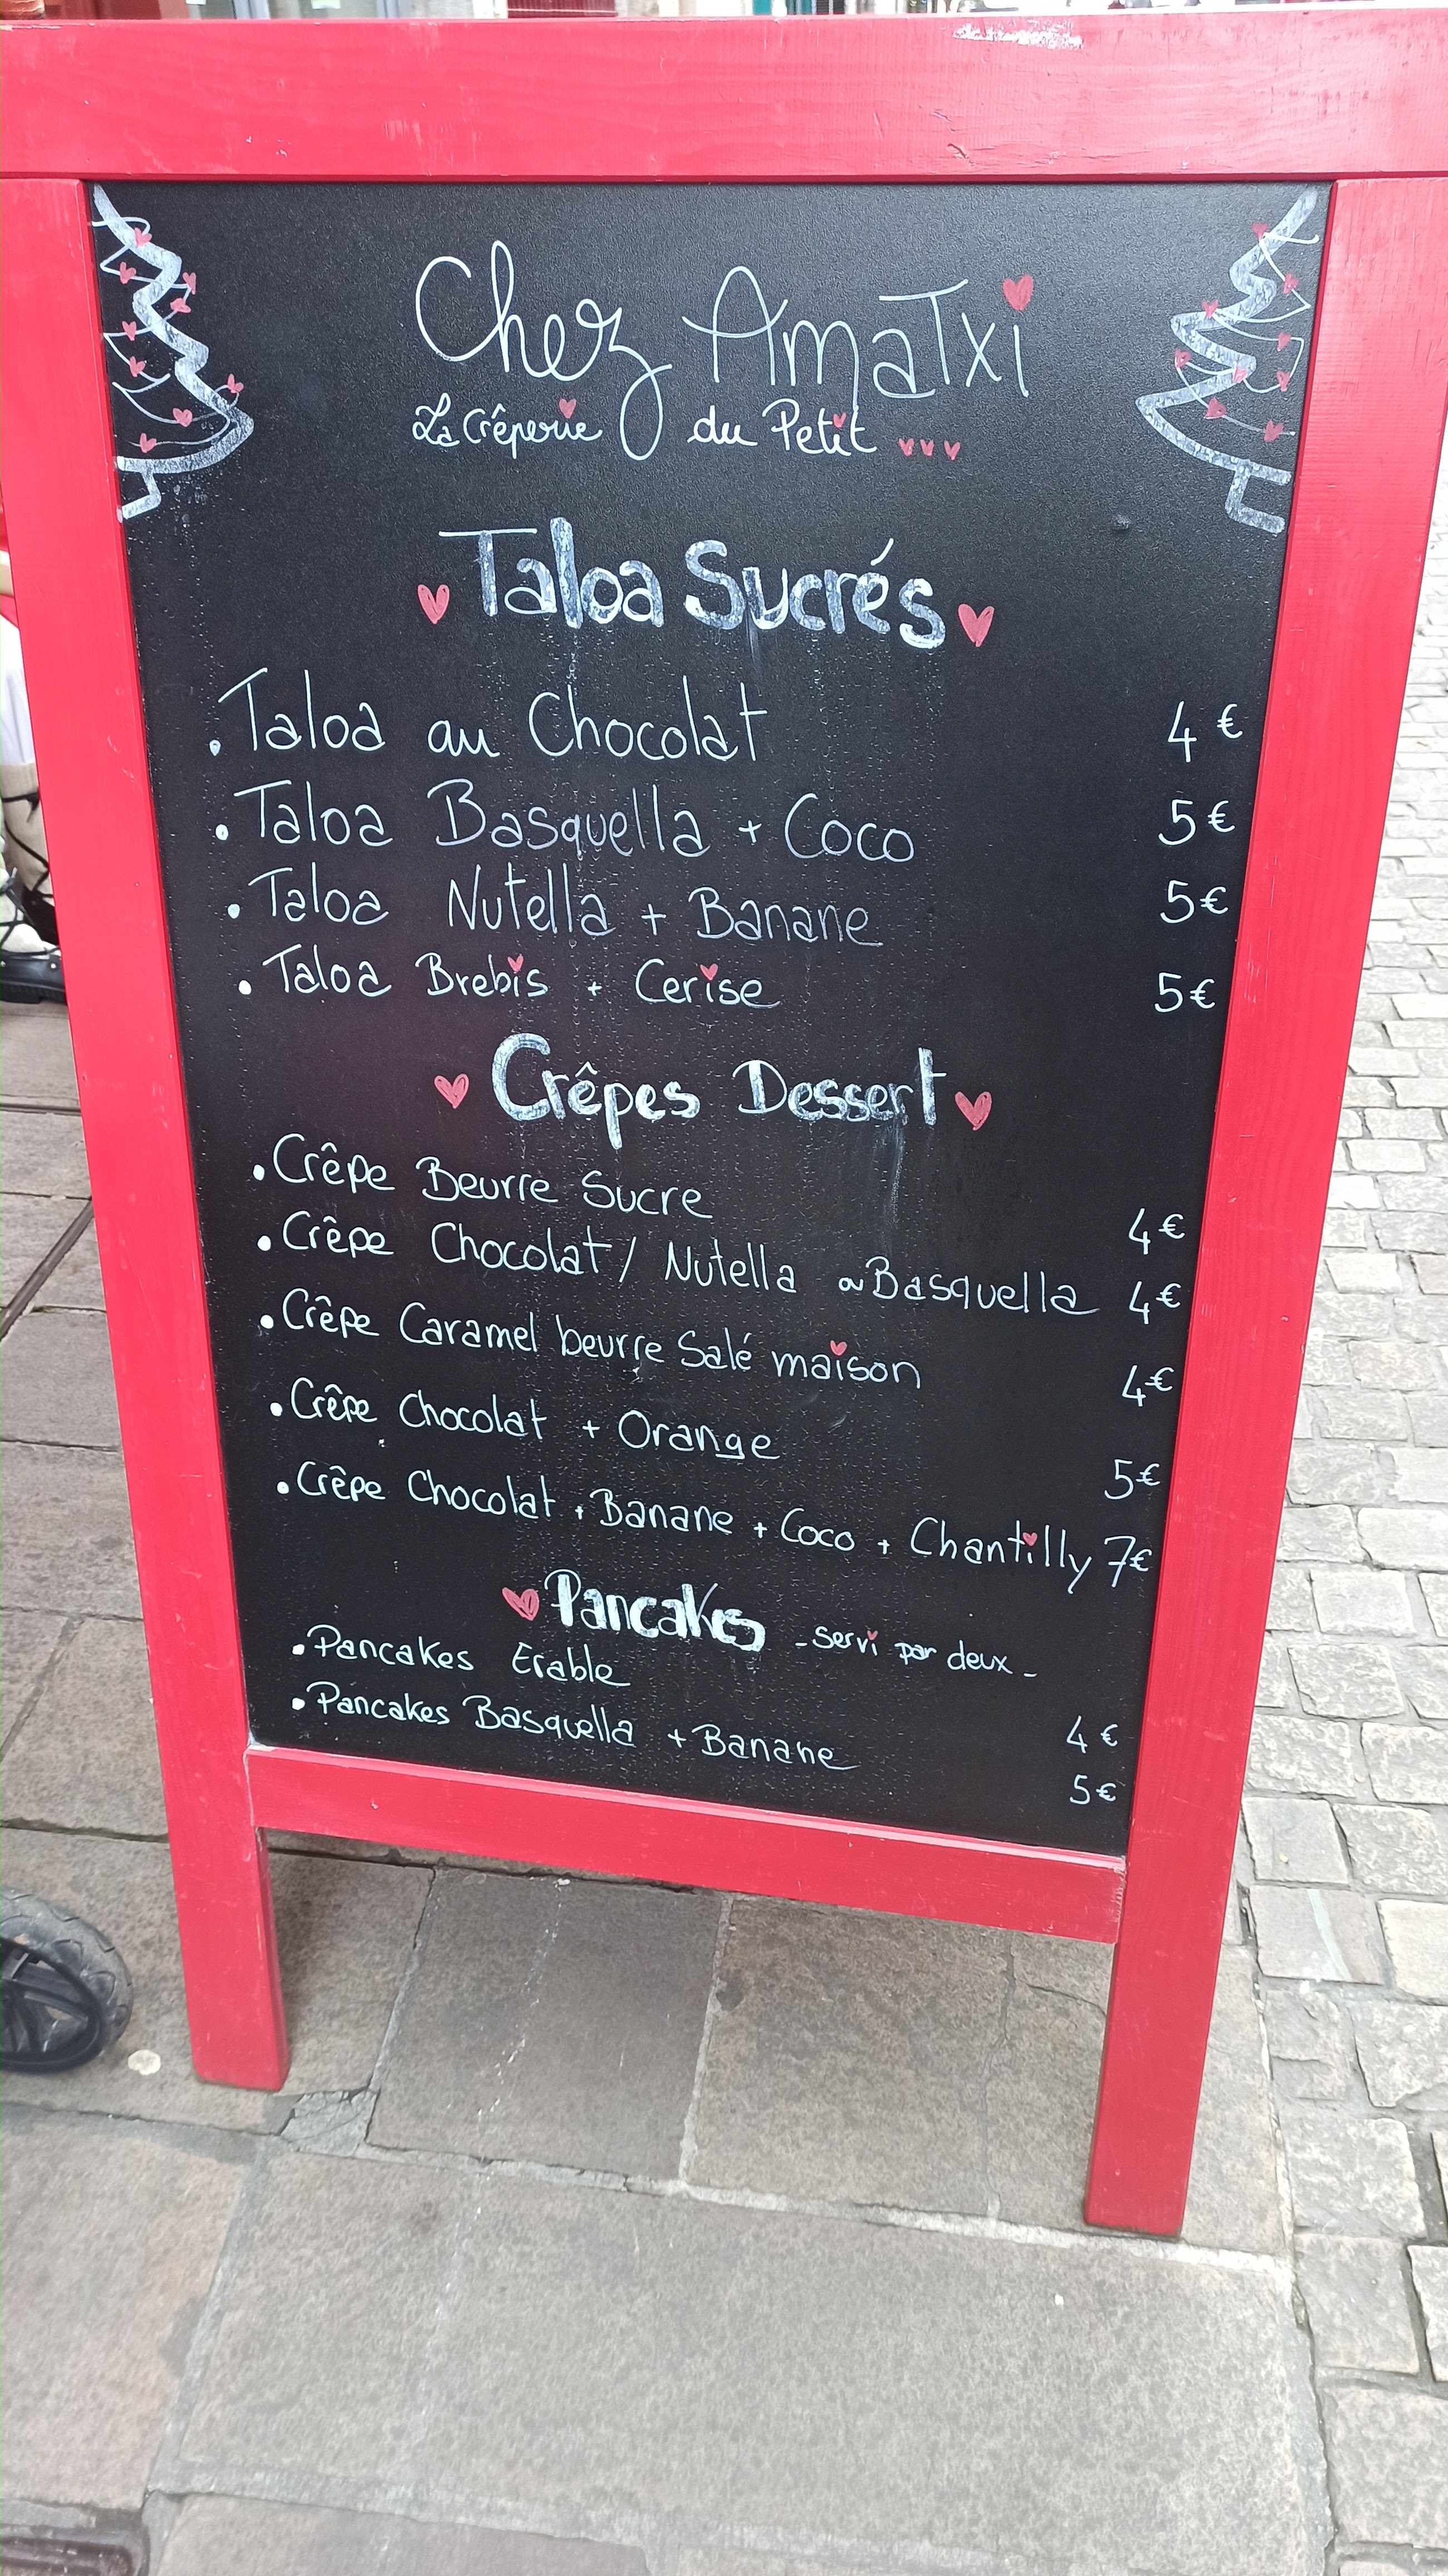 Chez Amatxi
La Crêperie du Petit
Taloa Sucrés
. Taloa au Chocolat 4 €
. Taloa Basquella + Coco 5 €
. Taloa Nutella + Banane 5 €
. Taloa Brebis + Cerise 5 €
Crêpes Dessert
. Crêpe Beurre Sucre 4 €
. Crêpe Chocolat / Nutella ou Basquella 4 €
. Crêpe Caramel beurre Salé maison 4 €
. Crêpe Chocolat + Orange 5 €
. Crêpe Chocolat + Banane + Coco + Chantilly 7 €
Pancakes - servi par deux -
. Pancakes Erable 4 €
. Pancakes Basquella + Banane 5 €